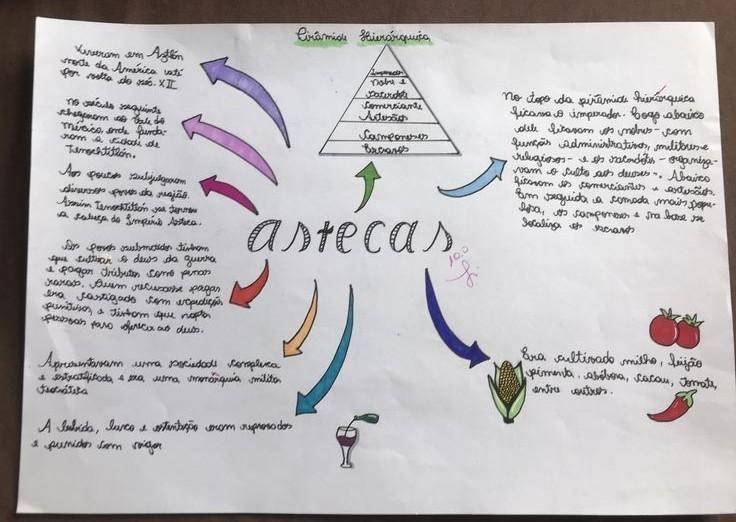 Pirâmide Hierárquica
Imperador
Nobre e
sacerdote
Comerciante
Artesão
Camponeses
Escravos
Viveram em Aztlán
norte da América até
por volta do séc. XII
No século seguinte
chegaram ao Vale do
México, onde funda-
ram a cidade de
Tenochtitlán.
Aos poucos subjugaram
diversos povos da região.
Assim Tenochtitlán se tornou
a cabeça do Império Asteca.
Os povos submetidos tinham
que cultuar o deus da guerra
e pagar tributos como penas
raras. Quem recusasse pagar
era castigado com expedições
punitivas, e tinham que
pessoas para oferecer ao deus.
Apresentavam uma sociedade complexa
e estratificada e era uma monarquia milita
teocrática
A bebida, luxo e ostentação eram reprovados
e punidos com vigor
astecas
No topo da pirâmide hierárquica
ficava o imperador. Logo abaixo
dele ficavam os nobres - com
funções administrativas, militares e
religiosas - e os sacerdotes - organiza-
vam o culto aos deuses -. Abaixo
ficavam os comerciantes e artesãos.
Em seguida a camada mais popu-
losa, os camponeses e na base se
localiza os escravos
10,0
Era cultivado milho, feijão
pimenta, abóbora, cacau, tomate,
entre outros.